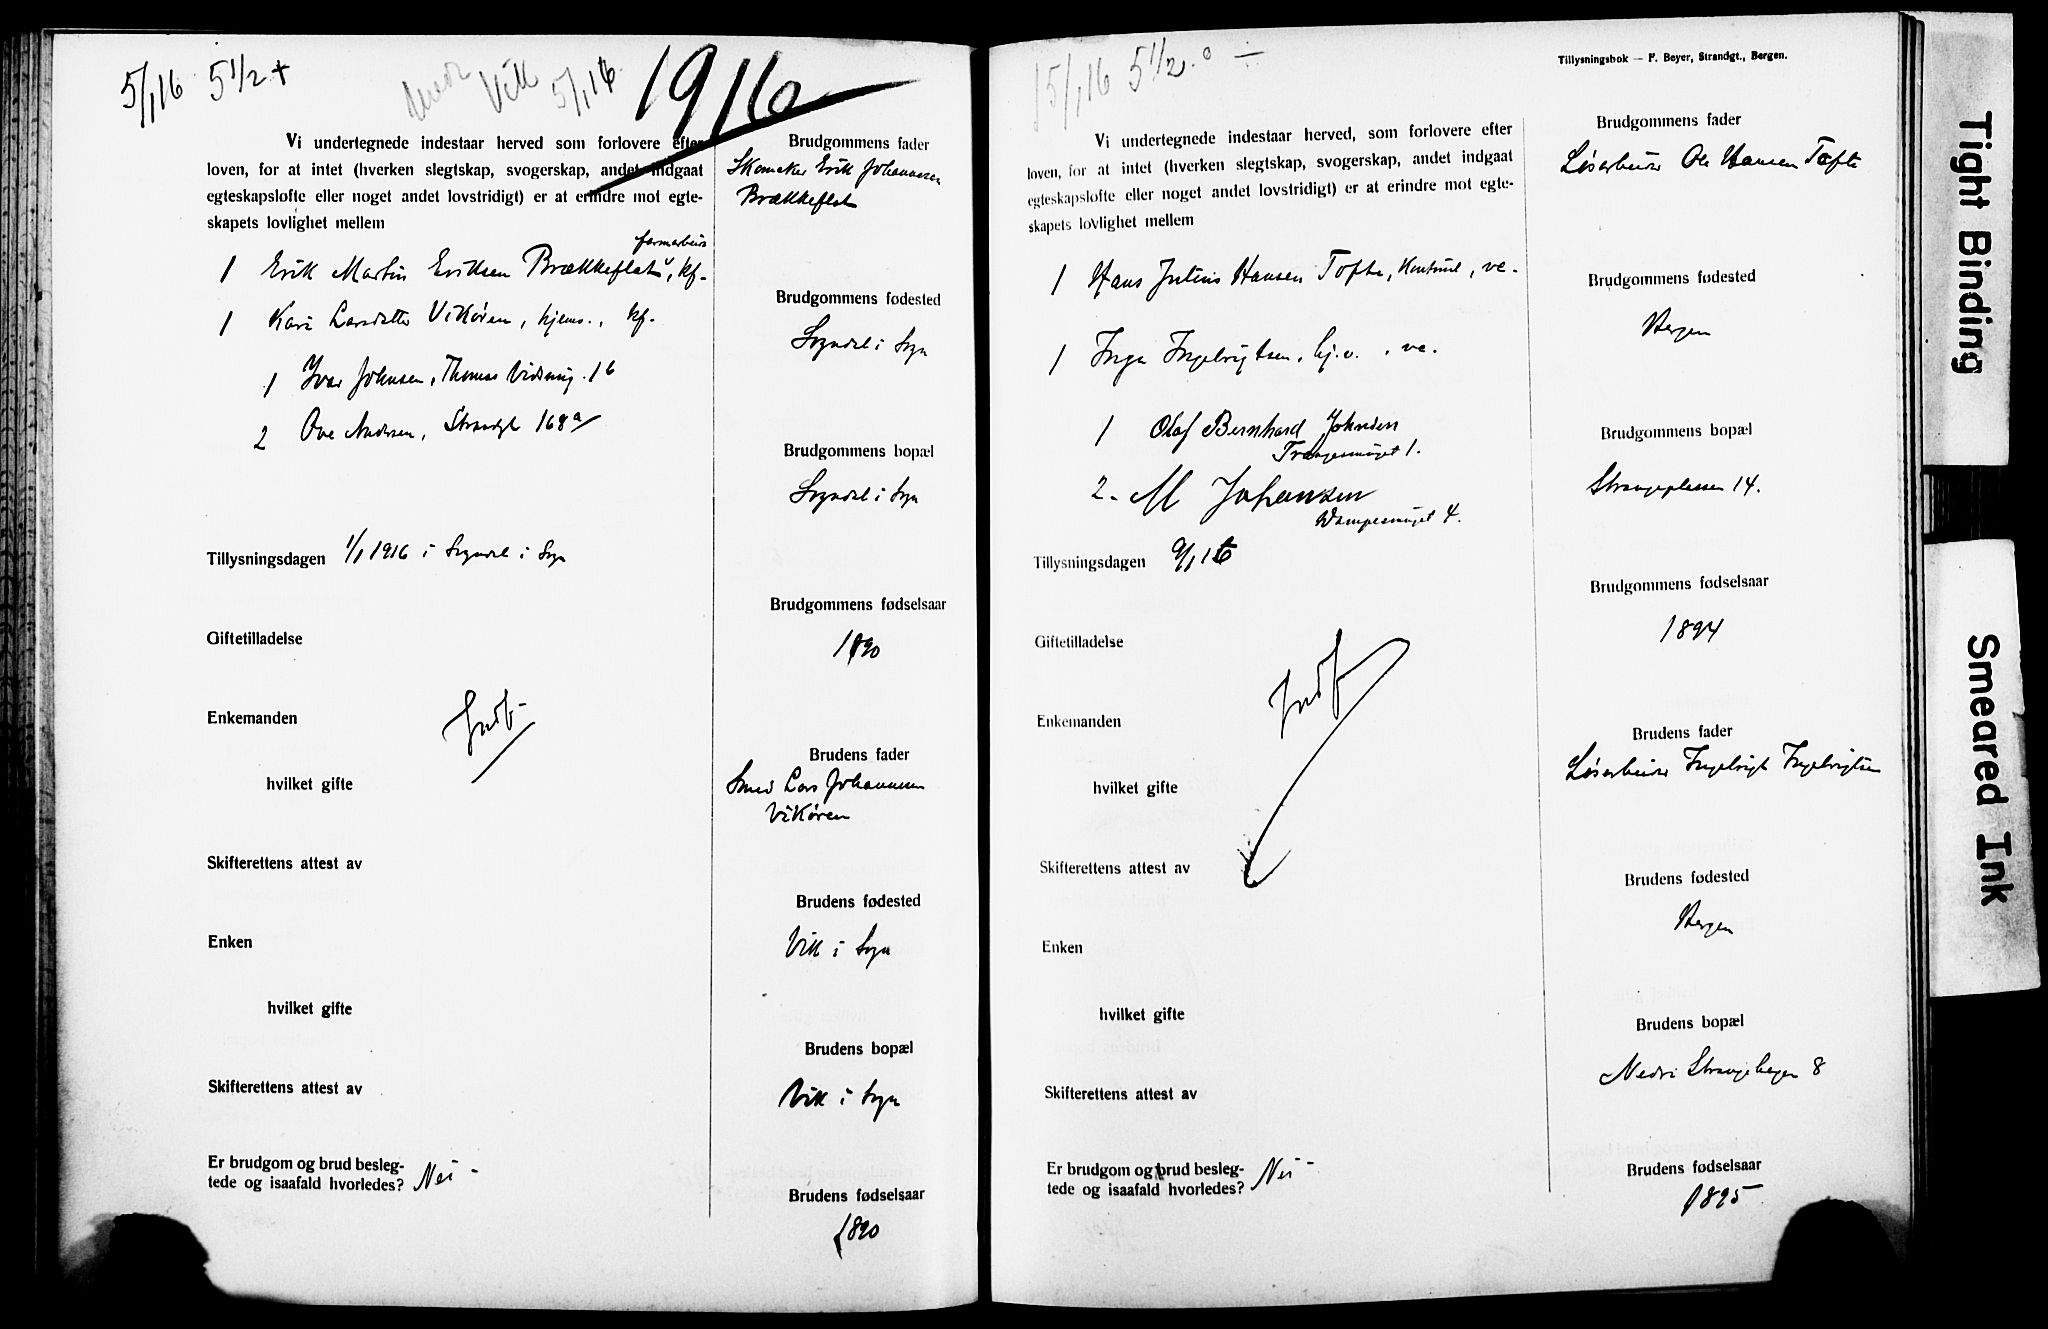 5/1 16 5 1/2 +
Vik 5/1 16.
1916
Vi undertegnede indestaar herved som forlovere efter
loven, for at intet (hverken slegtskap, svogerskap, andet indgaat
egteskapsløfte eller noget andet lovstridigt) er at erindre mot egte-
skapets lovlighet mellem
farmarbeider
1 Erik Martin Eriksen Brækkeflat, kf.
1 Kari Larsdatter Vikøren, hjems., kf.
1 Ivar Johnsen, Thomas 16
2 Ove Andersen, Strandgt 168a
Tillysningsdagen 1/1 1916 i Sogndal i Sogn
Giftetilladelse
Enkemanden
Indf.
hvilket gifte
Skifterettens attest av
Enken
hvilket gifte
Skifterettens attest av
Er brudgom og brud besleg-
tede og isaafald hvorledes? Nei -
Brudgommens fader
Skomaker Erik Johannesen
Brækkeflat
Brudgommens fødested
Sogndal i Sogn
Brudgommens bopæl
Sogndal i Sogn
Brudgommens fødselsaar
1890
Brudens fader
Smed Lars Johannesen
Vikøren
Brudens fødested
Vik i Sogn
Brudens bopæl
Vik i Sogn
Brudens fødselsaar
1890
15/1 16 5 1/2
Tillysningsbok — F. Beyer, Strandgt., Bergen.
Vi undertegnede indestaar herved, som forlovere efter
loven, for at intet (hverken slegtskap, svogerskap, andet indgaat
egteskapsløfte eller noget andet lovstridigt) er at erindre mot egte-
skapets lovlighet mellem
1 Hans Julius Hansen Tofte, ve.
1 Inga Ingebrigtsen, hj.v., ve.
1 Olaf Bernhard Johnsen
Trangesmuget 1.
2. M Johansen
4.
Tillysningsdagen 9/1 16
Giftetilladelse
Enkemanden
Indf
hvilket gifte
Skifterettens attest av
Enken
hvilket gifte
Skifterettens attest av
Er brudgom og brud besleg-
tede og isaafald hvorledes? Nei -
Brudgommens fader
Løsarbeider Ole Hansen Tofte
Brudgommens fødested
Bergen
Brudgommens bopæl
Strangeplassen 14.
Brudgommens fødselsaar
1894
Brudens fader
Løsarbeider Ingebrigt Ingebrigtsen
Brudens fødested
Bergen
Brudens bopæl
Nedre Strangehagen 8
Brudens fødselsaar
1895
Tight Binding
Smeared Ink